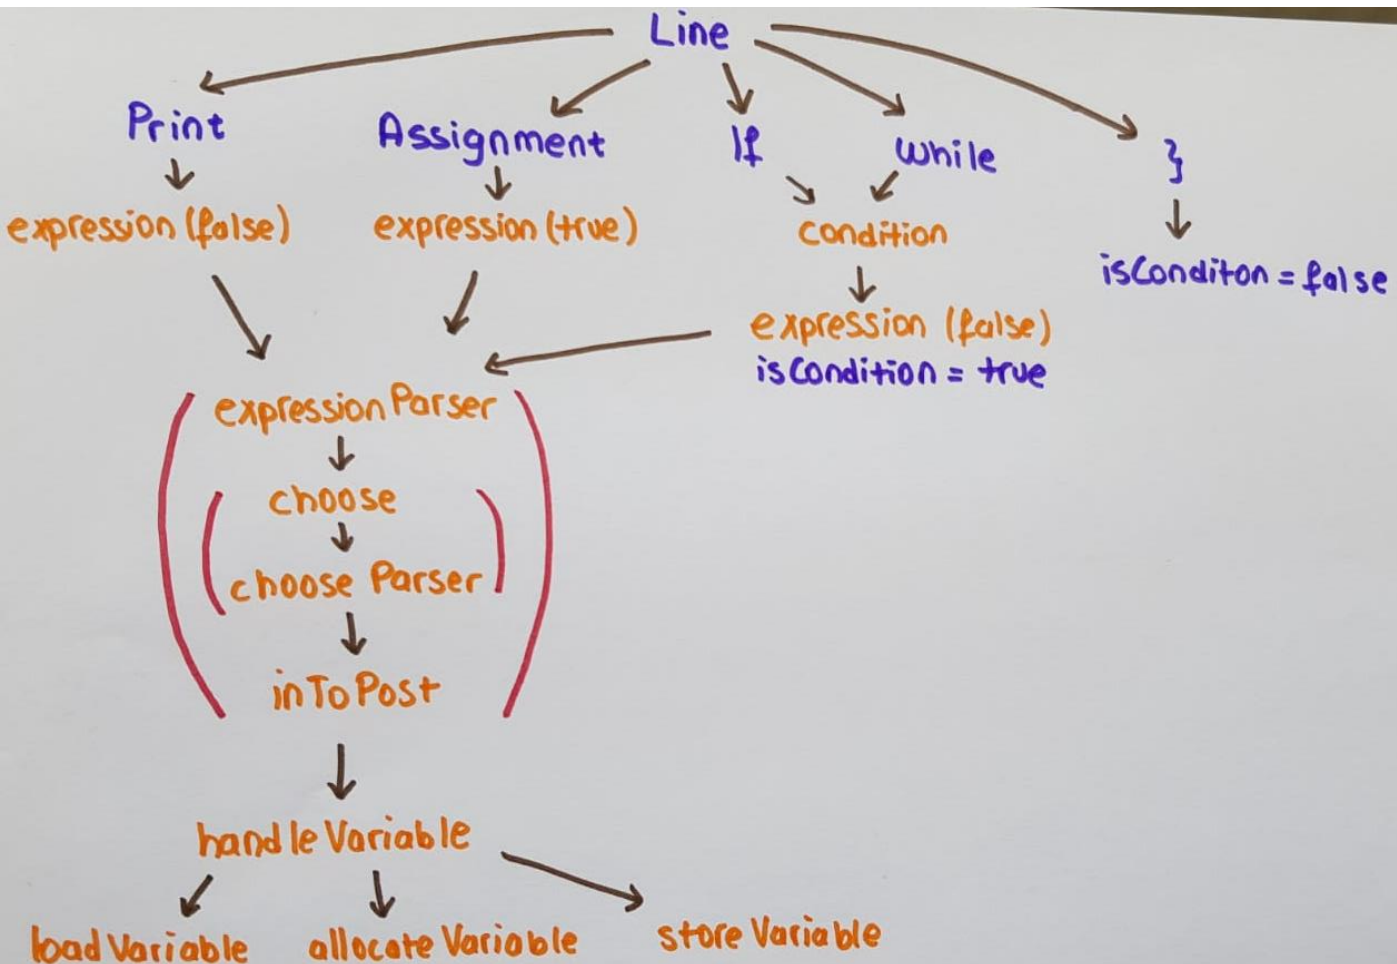 Line
Print
Assignment
If
while
}
expression (false)
expression (true)
condition
isConditon = false
expression (false)
isCondition = true
expression Parser
choose
choose Parser
inToPost
handle Variable
load Variable
allocate Variable
store Variable